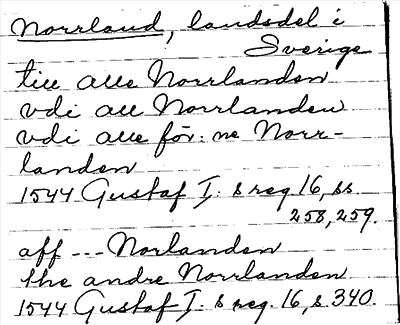 Norrland, landsdel i
Sverige
till alle Norrlanden
vdi all Norrlanden
vdi alle för:ne Norr-
landen
1544 Gustaf I:s reg 16, ss.
258, 259.
aff --- Norlanden
the andre Norrlanden
1544 Gustaf I:s reg. 16, s. 340.